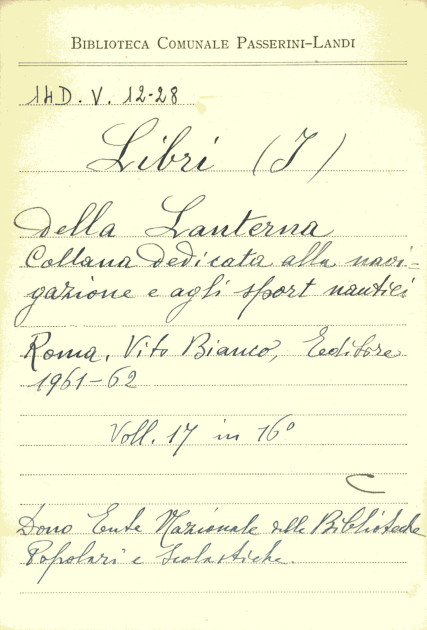 BIBLIOTECA COMUNALE PASSERINI-LANDI
14D. V. 12-28
Libri (I)
della Lanterna
Collana dedicata alla navi-
gazione e agli sport nautici
Roma, Vito Bianco, Editore
1961-62
Voll. 17 in 16°
Dono Ente Nazionale delle Biblioteche
Popolari e Scolastiche.